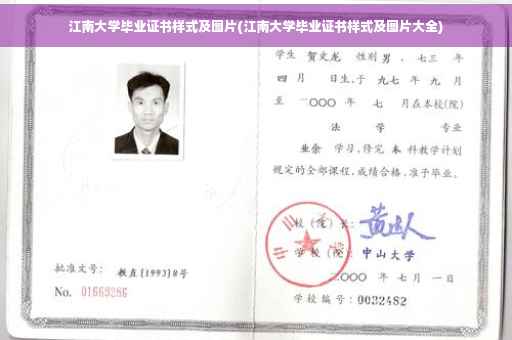 江南大学毕业证书样式及图片(江南大学毕业证书样式及图片大全)
学生 贺文龙 性别 男 、七三 年
四 月 日生,于 九七 年 九 月
至 二〇〇〇 年 七 月在本校(院)
法 学 专业
业余 学习,修完 本 科教学计划
规定的全部课程,成绩合格,准予毕业。
校(院)长:
学校(院): 中山大学
二〇〇〇 年 七 月 一 日
学校编号: 0032482
批准文号: 教直(1993)8号
No. 01669286